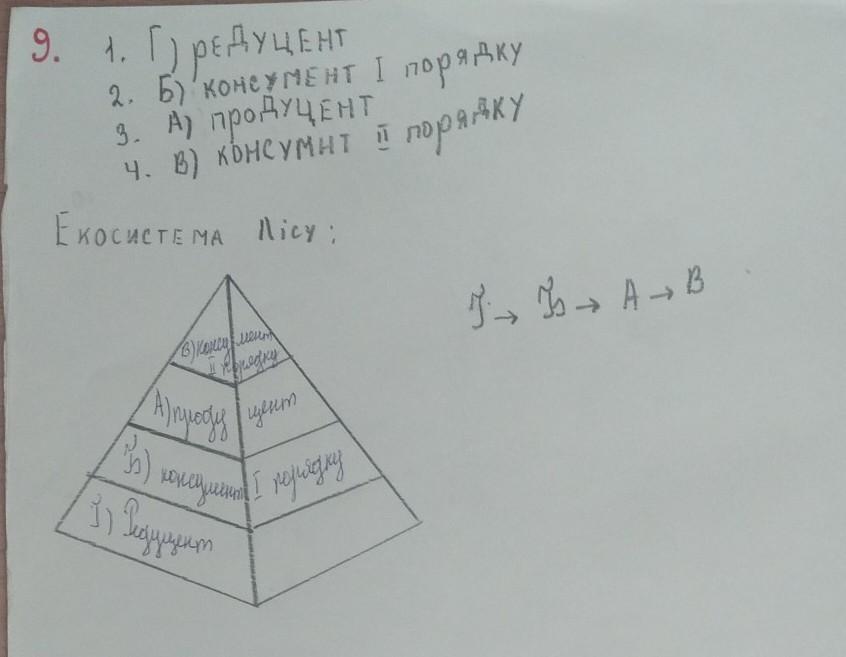 9.
1. Г) РЕДУЦЕНТ
2. Б) КОНСУМЕНТ І ПОРЯДКУ
3. А) ПРОДУЦЕНТ
4. В) КОНСУМНТ ІІ ПОРЯДКУ
ЕКОСИСТЕМА ЛІСУ:
Г → Б → А → В
В) консумент
ІІ порядку
А) продуцент
Б) консумент І порядку
Г) Редуцент